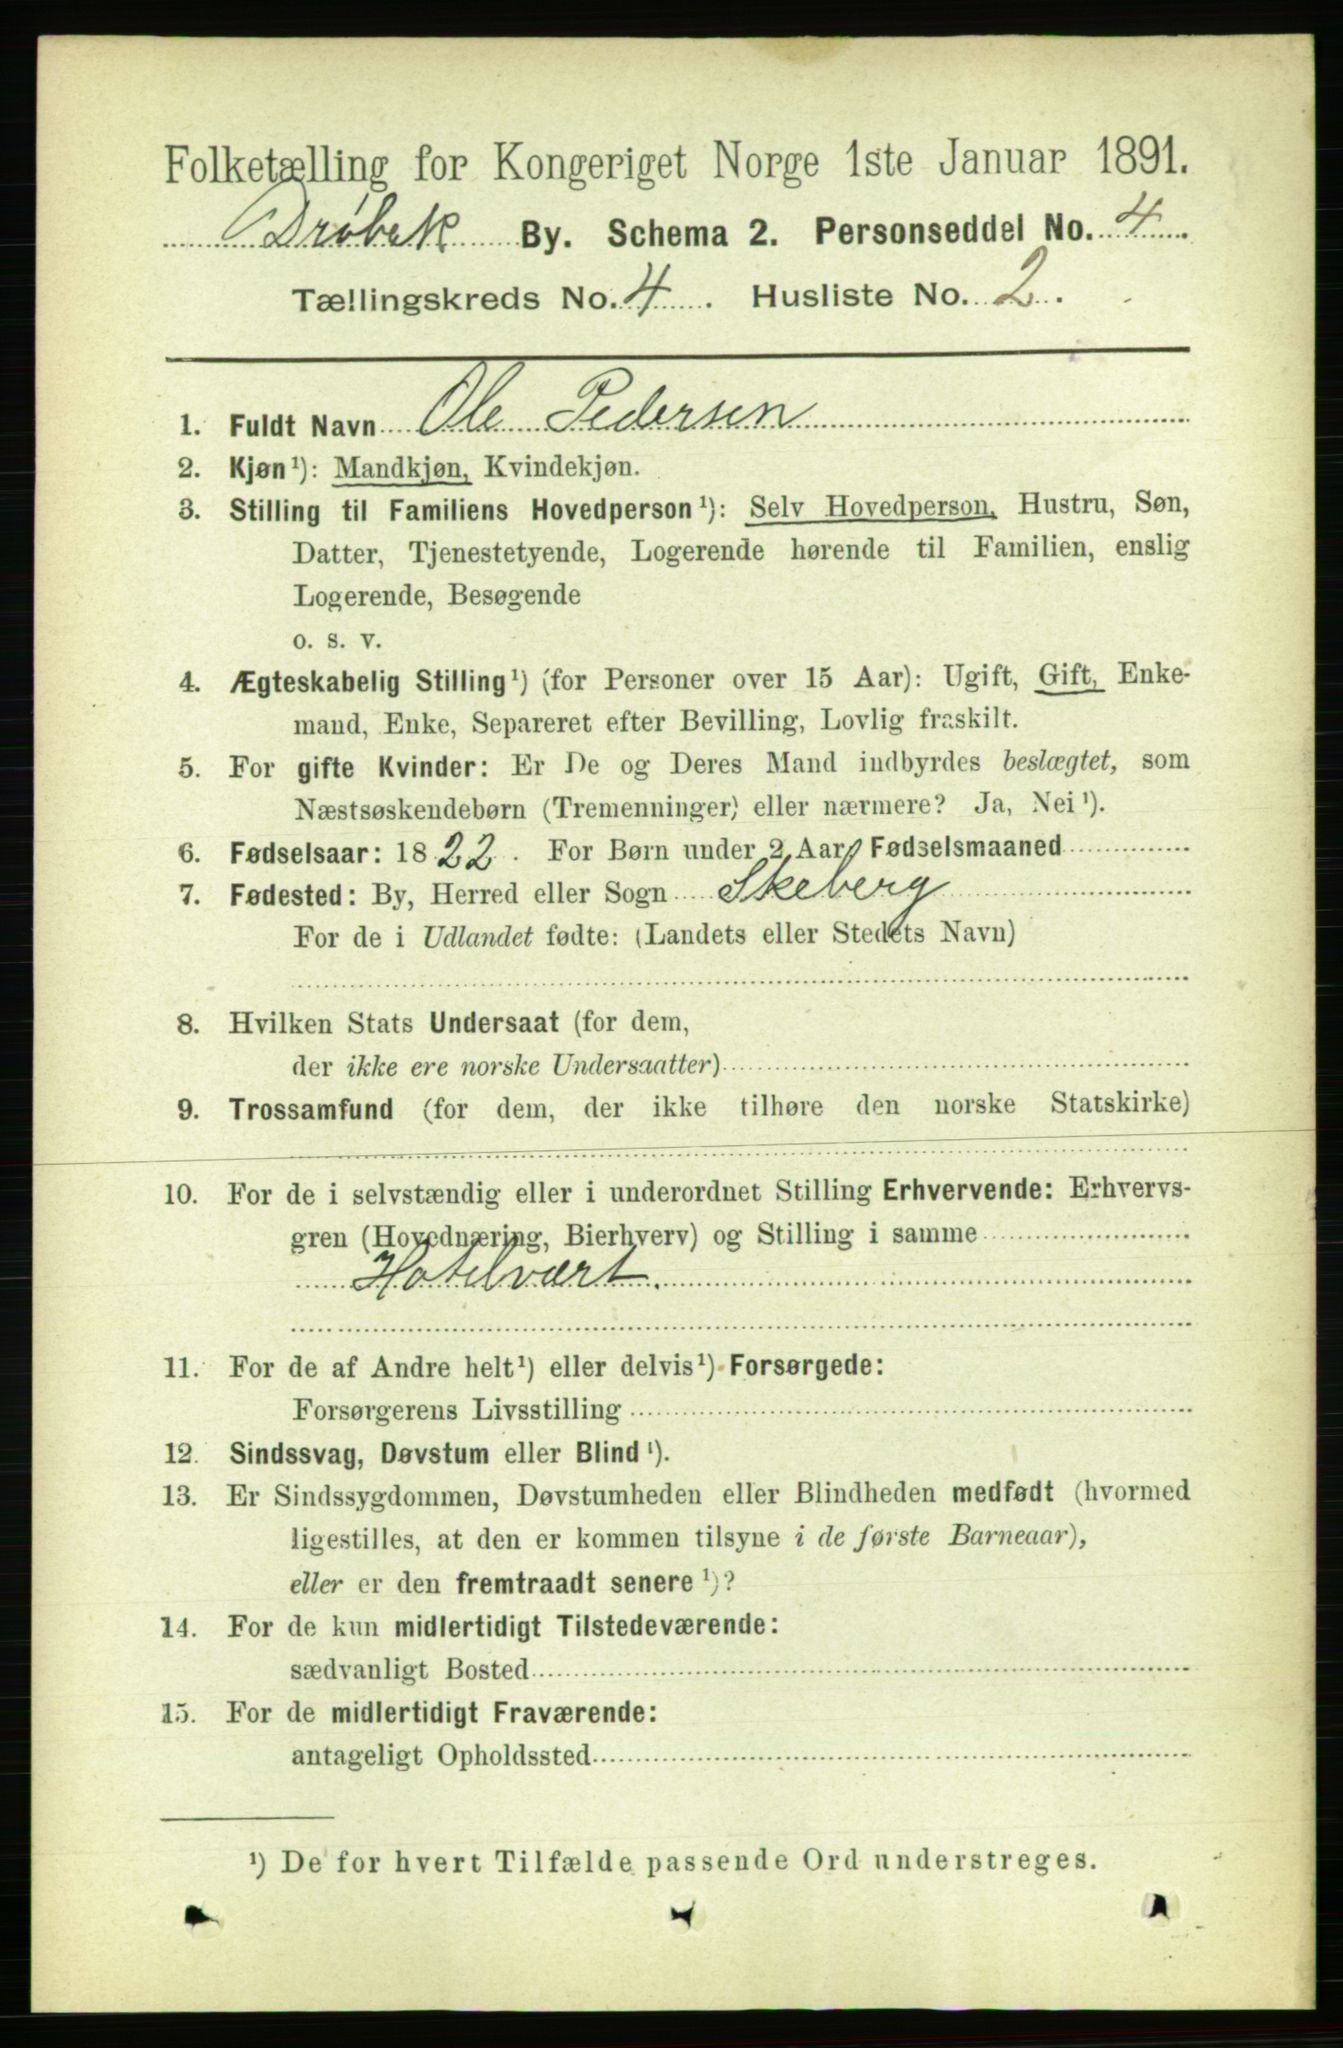 Folketælling for Kongeriget Norge 1ste Januar 1891.
Drøbak By. Schema 2. Personseddel No. 4
Tællingskreds No. 4. Husliste No. 2.
1. Fuldt Navn Ole Pedersen
2. Kjøn¹): Mandkjøn, Kvindekjøn.
3. Stilling til Familiens Hovedperson¹): Selv Hovedperson, Hustru, Søn,
Datter, Tjenestetyende, Logerende hørende til Familien, enslig
Logerende, Besøgende
o. s. v.
4. Ægteskabelig Stilling¹) (for Personer over 15 Aar): Ugift, Gift, Enke-
mand, Enke, Separeret efter Bevilling, Lovlig fraskilt.
5. For gifte Kvinder: Er De og Deres Mand indbyrdes beslægtet, som
Næstsøskendebørn (Tremenninger) eller nærmere? Ja, Nei¹).
6. Fødselsaar: 1822. For Børn under 2 Aar, Fødselsmaaned
7. Fødested: By, Herred eller Sogn Skeberg
For de i Udlandet fødte: (Landets eller Stedets Navn)
8. Hvilken Stats Undersaat (for dem,
der ikke ere norske Undersaatter)
9. Trossamfund (for dem, der ikke tilhøre den norske Statskirke)
10. For de i selvstændig eller i underordnet Stilling Erhvervende: Erhvervs-
gren (Hovednæring, Bierhverv) og Stilling i samme
Hotelvært.
11. For de af Andre helt¹) eller delvis¹) Forsørgede:
Forsørgerens Livsstilling
12. Sindssvag, Døvstum eller Blind¹).
13. Er Sindssygdommen, Døvstumheden eller Blindheden medfødt (hvormed
ligestilles, at den er kommen tilsyne i de første Barneaar),
eller er den fremtraadt senere¹)?
14. For de kun midlertidigt Tilstedeværende:
sædvanligt Bosted
15. For de midlertidigt Fraværende:
antageligt Opholdssted
¹) De for hvert Tilfælde passende Ord understreges.